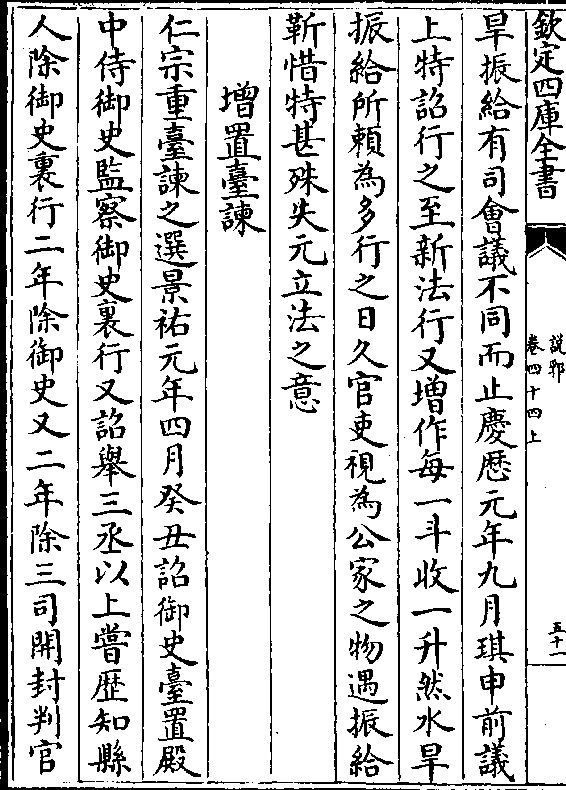 欽定四庫全書
說郛
卷四十四上
五十一
旱振給有司會議不同而止慶歴元年九月琪申前議
上特詔行之至新法行又增作每一斗收一升然水旱
振給所頼為多行之日久官吏視為公家之物遇振給
靳惜特甚殊失元立法之意
增置臺諫
仁宗重臺諫之選景祐元年四月癸丑詔御史臺置殿
中侍御史監察御史裏行又詔舉三丞以上嘗歴知縣
人除御史裏行二年除御史又二年除三司開封判官